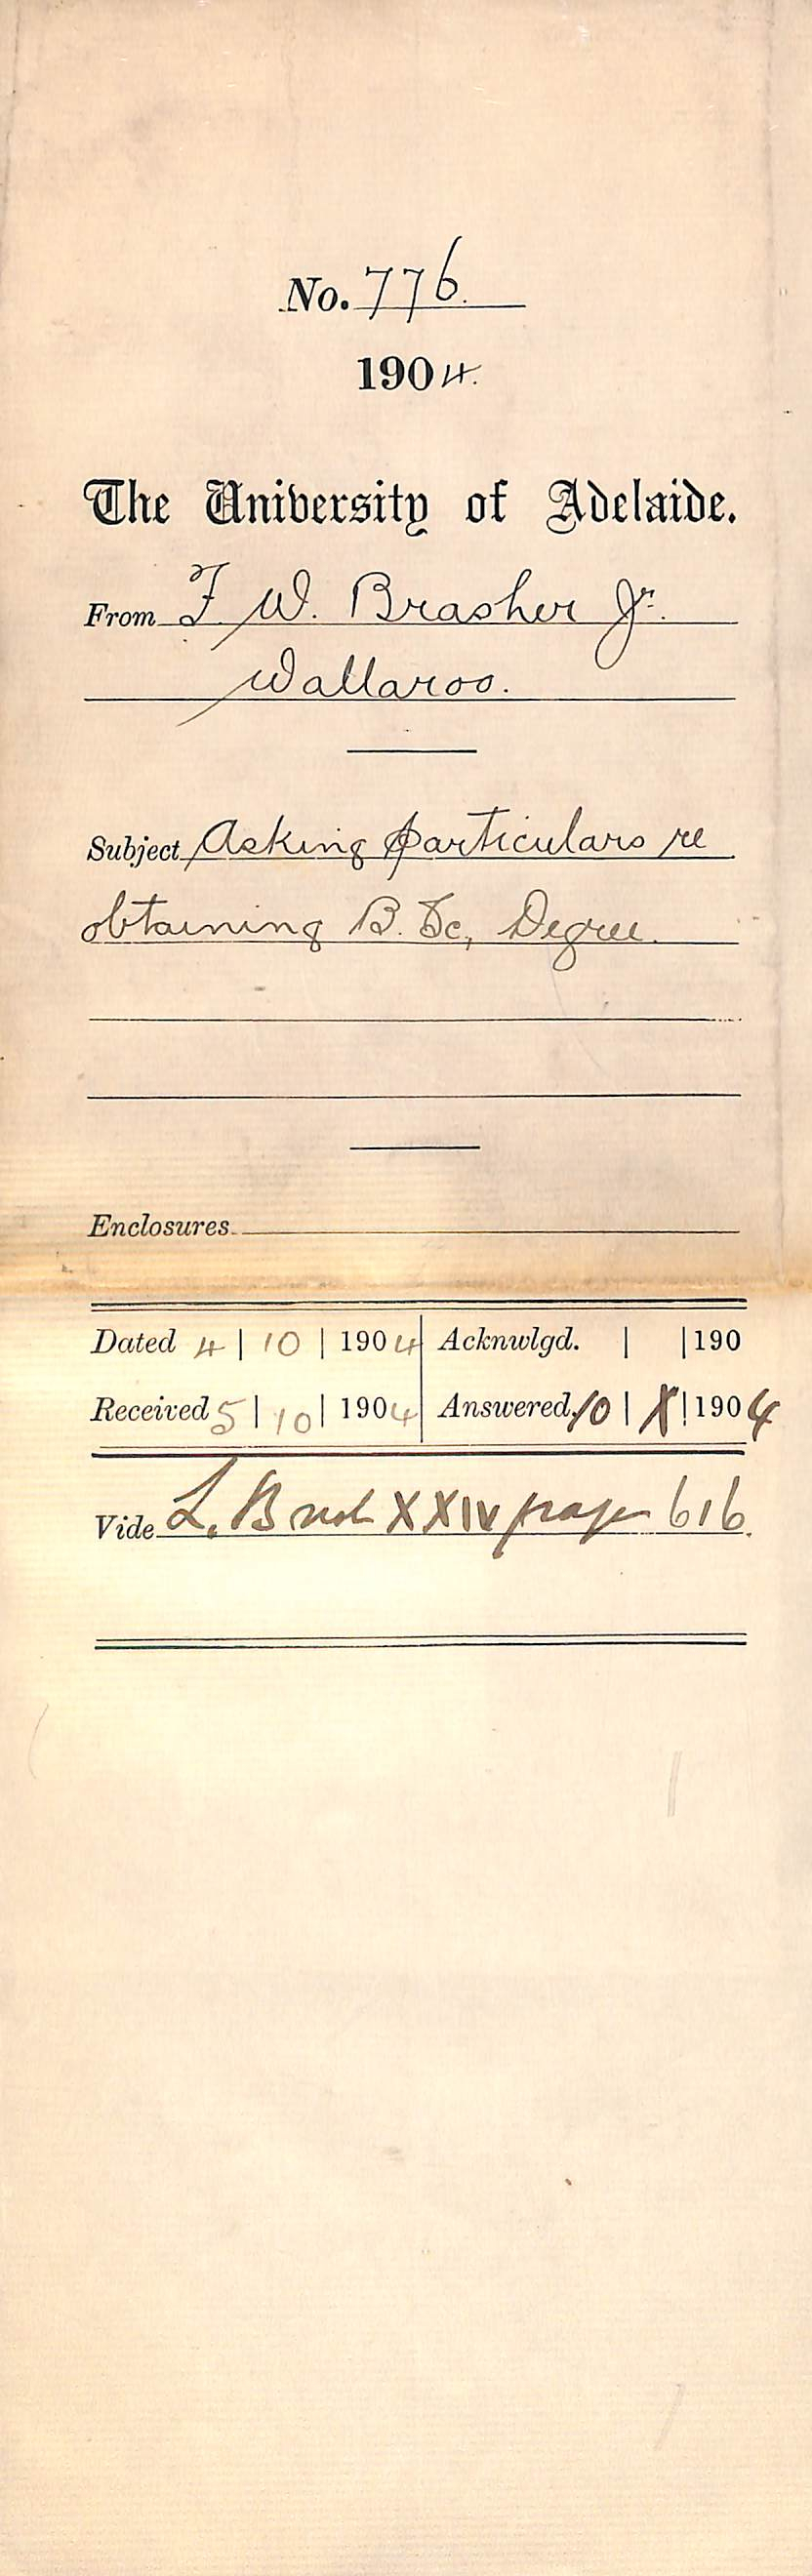 No. 776.
1904.
The University of Adelaide.
From F W. Brasher Jr.
Wallaroo.
Subject Asking particulars re
obtaining B. Sc, Degree.
Enclosures
Dated 4 | 10 | 1904 Acknwlgd. | | 190
Received 5 | 10 | 1904 Answered. 10 | X | 1904
Vide L. B vol XXIV page 616.